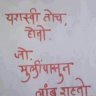 यशस्वी तोच,
होतो.
जो.
मुलींपासुन
लांब राहतो